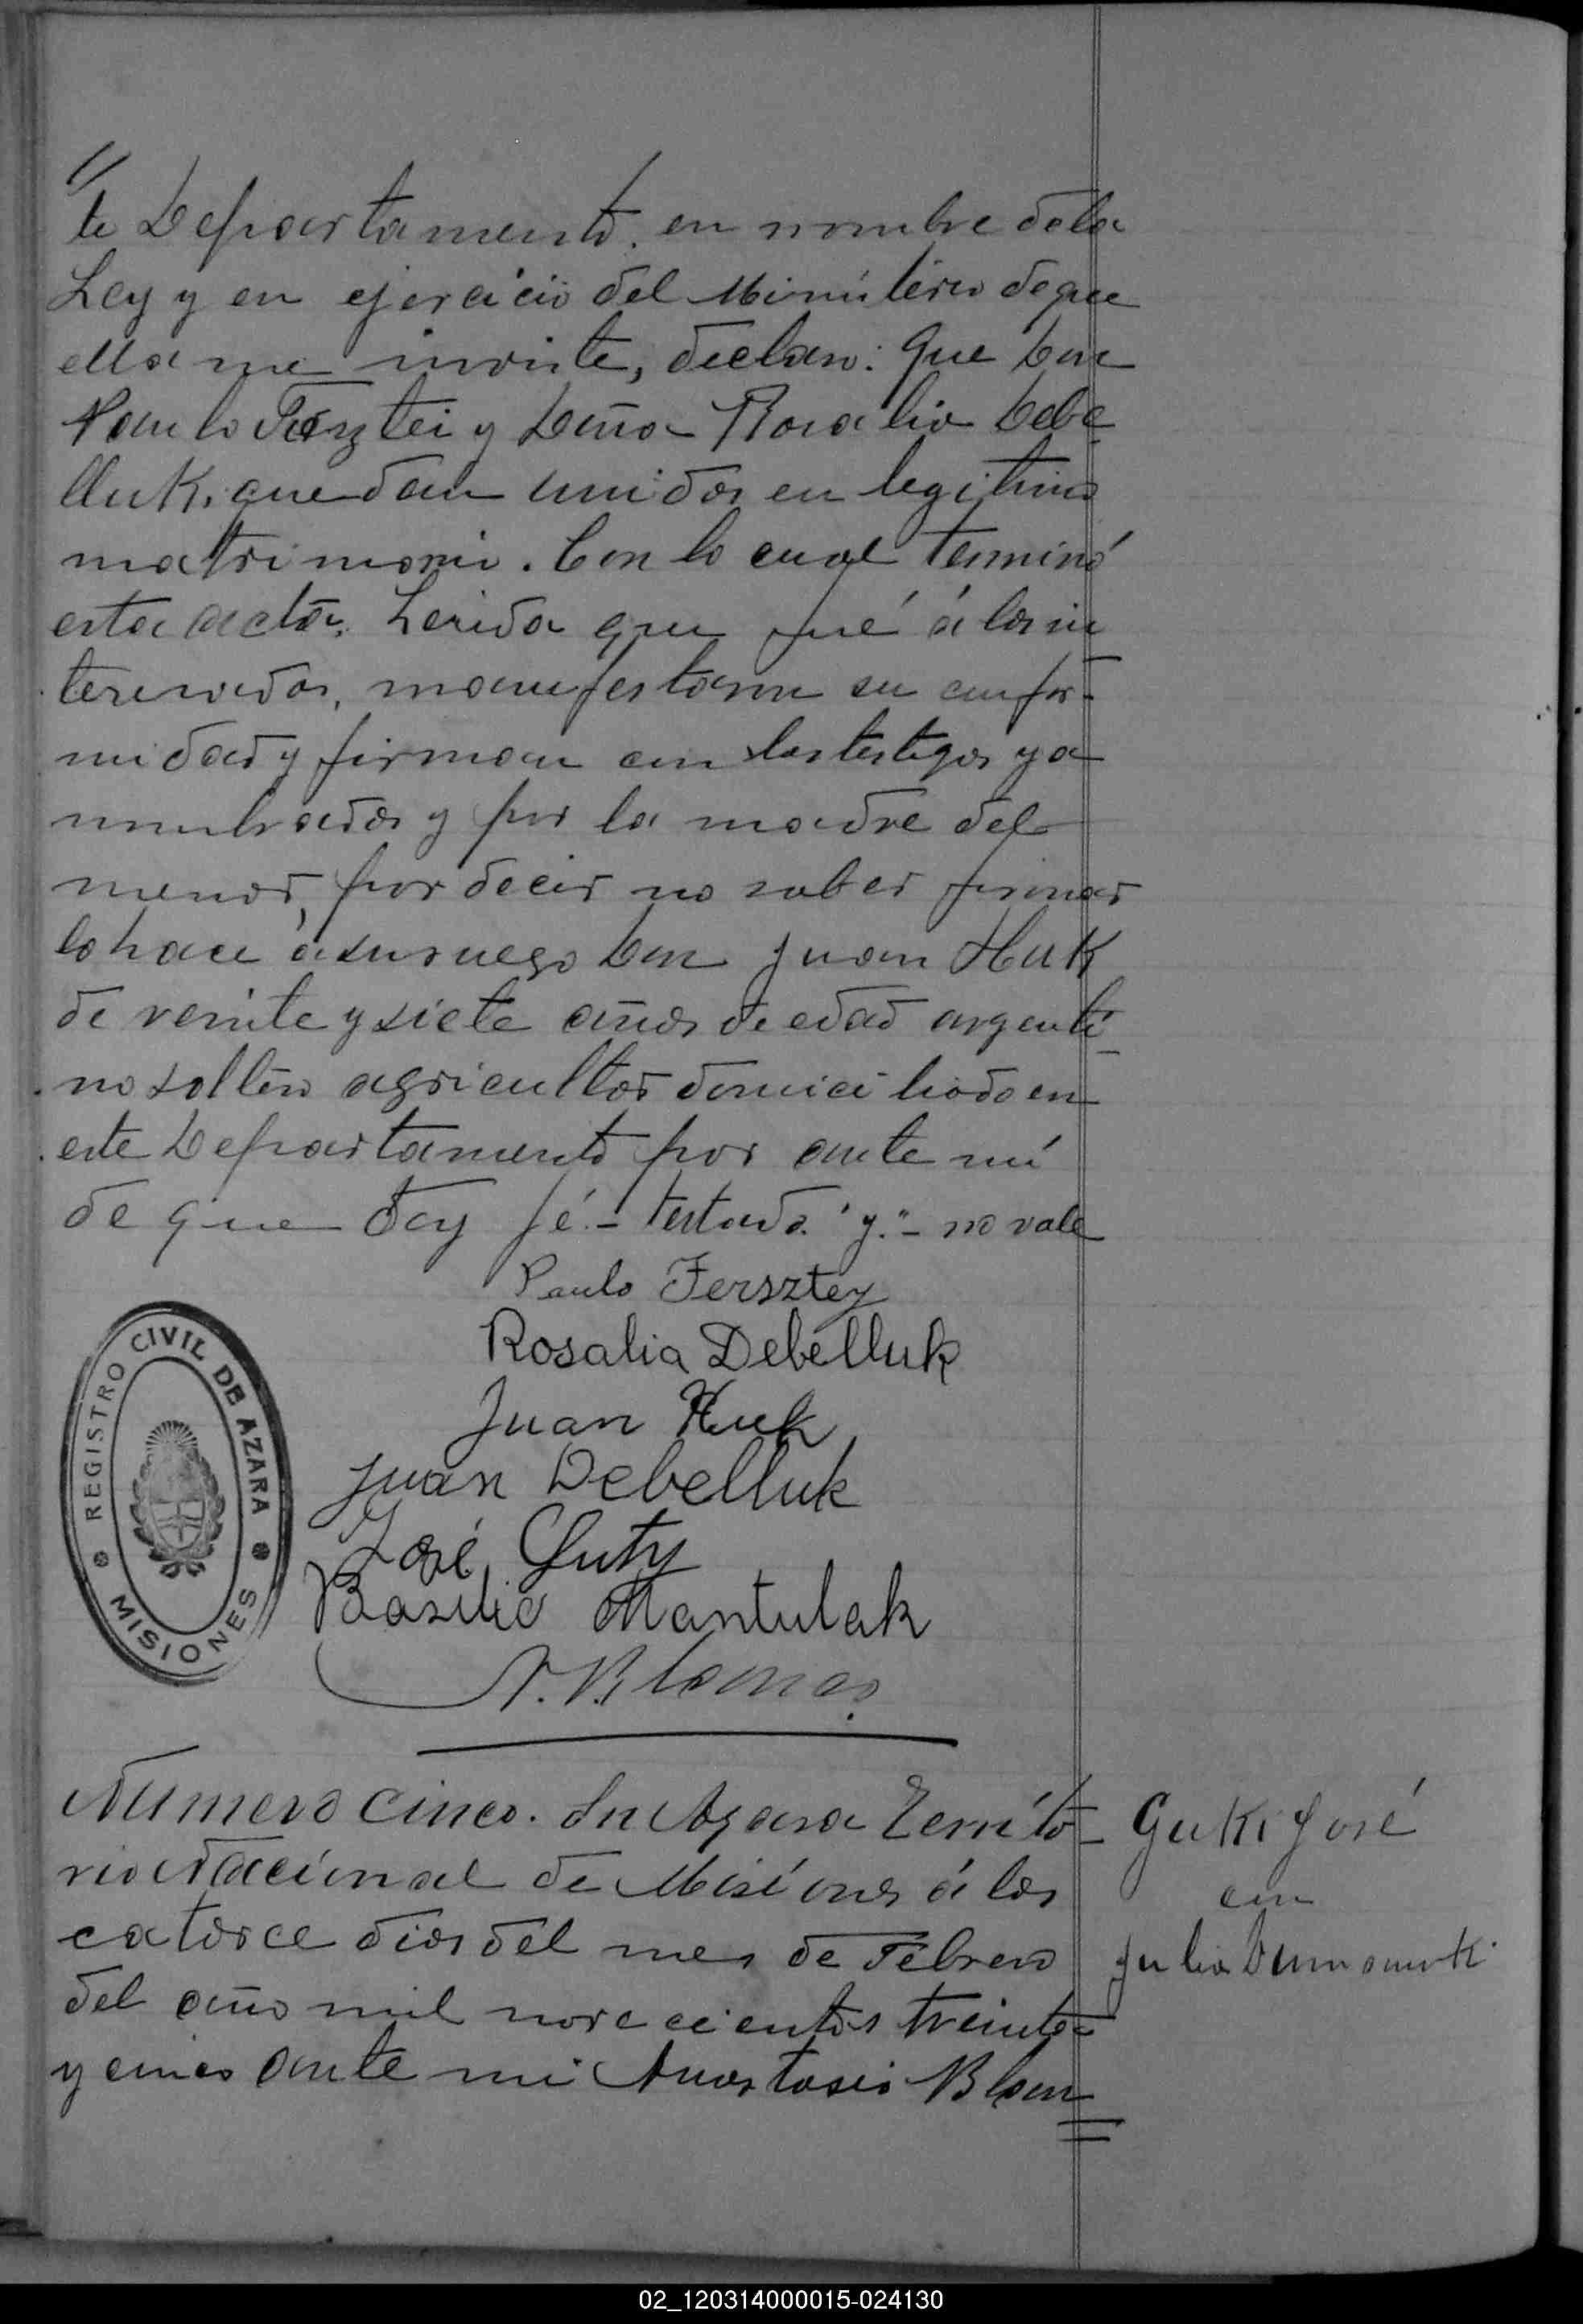 //
te Departamento. en nombre dela
Ley y en ejercicio del Ministerio deque
ella me inviste, declaro: Que Don
Paulo Fersztei y Doña Rosalia Debe
lluk, quedan unidos en legitimo
matrimonio. Con lo cual terminó
esta acta. Leida que fué á los in
teresados, manifestaron su confor-
midad y firman con los testigos ya
nombrados y por la madre del
menor, por decir no saber firmar
lo hace á su ruego Don Juan Huk
de veinte y siete años de edad argenti
no soltero agricultor domiciliado en
este Departamento por ante mí
de que doy fé.- testado. "y."- no vale
Paulo Fersztey
Rosalia Debelluk
Juan Huk
Juan Debelluk
José Gluty
Basilio Mantulak
A. Blanes
REGISTRO CIVIL DE AZARA
MISIONES
Numero cinco. En Azara Territo-
rio Nacional de Misiones á los
catorce dias del mes de Febrero
del año mil novecientos treinta
y cinco ante mi Anastasio Blan
José
con
Julia
02_120314000015-024130